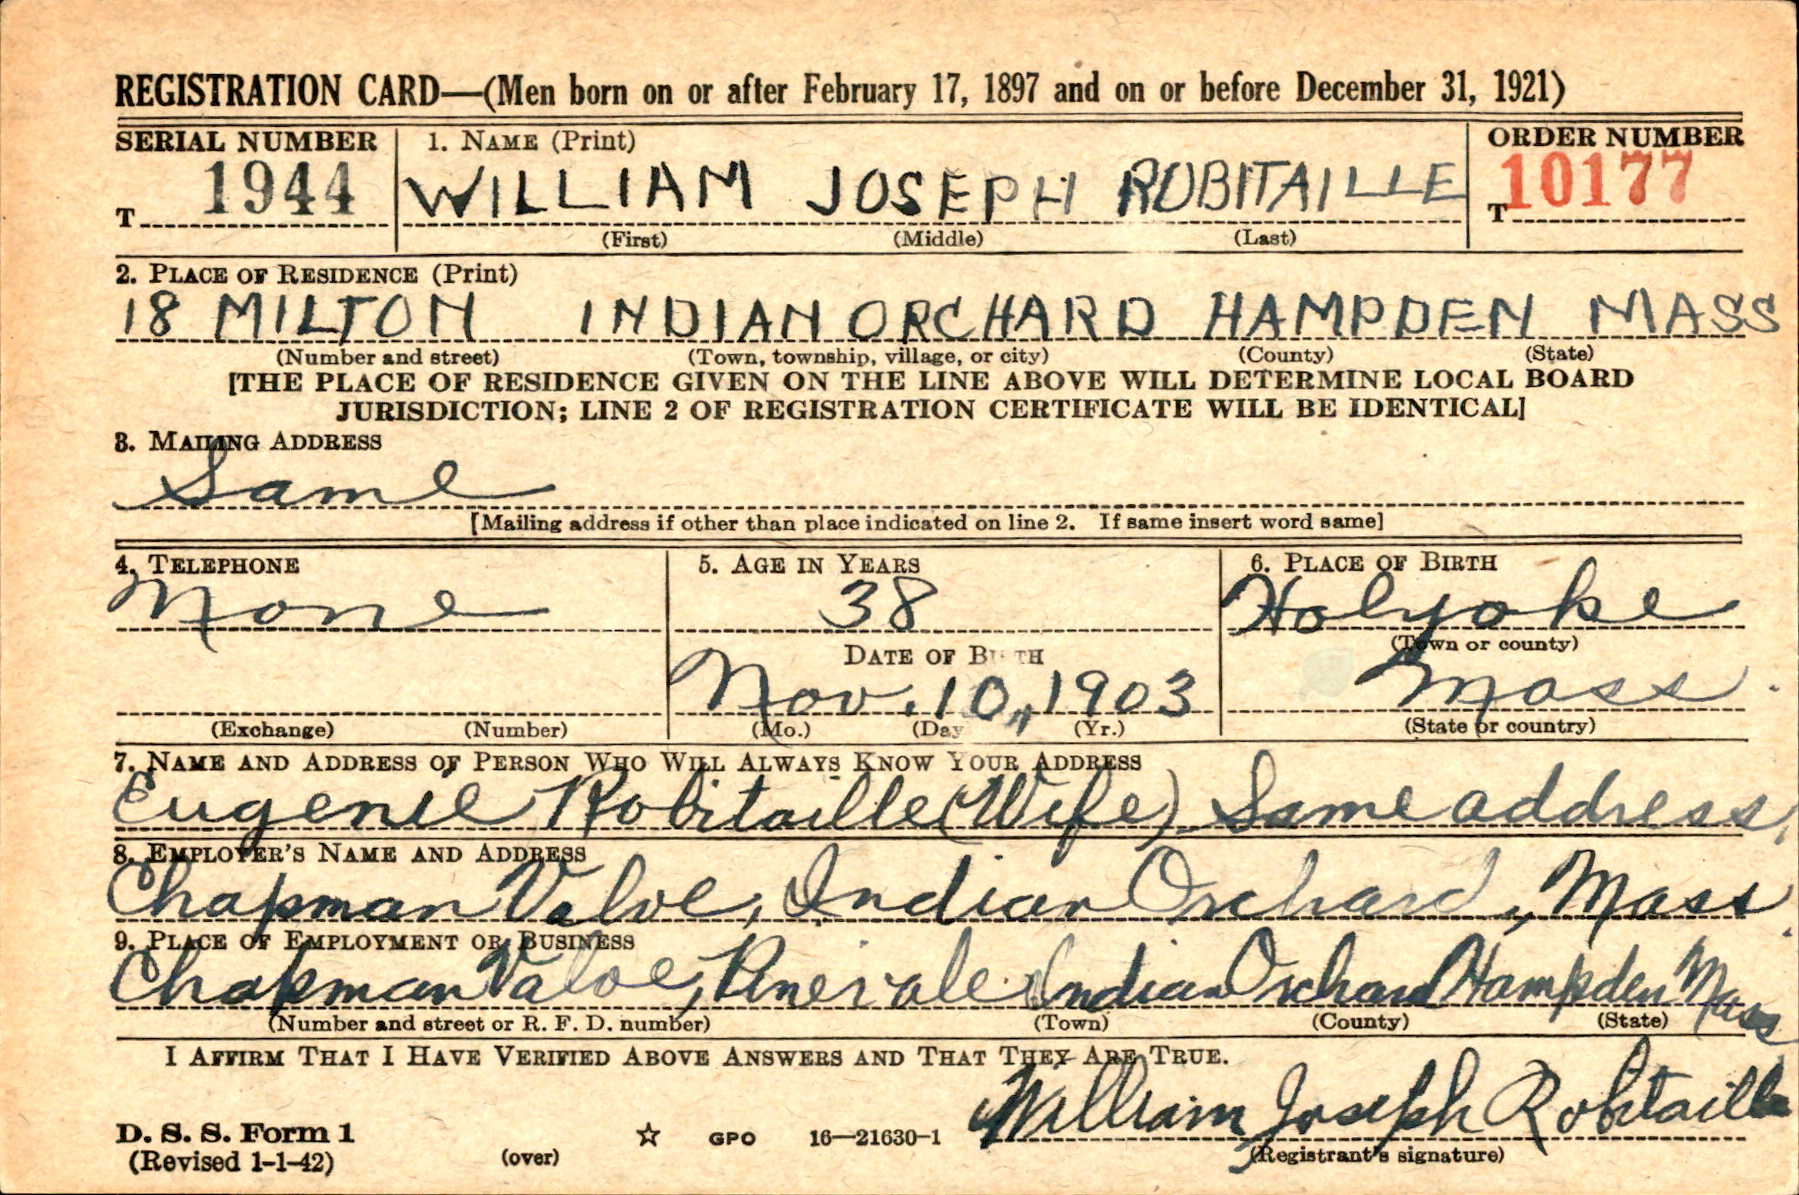 REGISTRATION CARD—(Men born on or after February 17, 1897 and on or before December 31, 1921)
SERIAL NUMBER 1. NAME (Print) ORDER NUMBER
T 1944 WILLIAM JOSEPH ROBITAILLE T 10177
(First) (Middle) (Last)
2. PLACE OF RESIDENCE (Print)
18 MILTON INDIAN ORCHARD HAMPDEN MASS
(Number and street) (Town, township, village, or city) (County) (State)
[THE PLACE OF RESIDENCE GIVEN ON THE LINE ABOVE WILL DETERMINE LOCAL BOARD
JURISDICTION; LINE 2 OF REGISTRATION CERTIFICATE WILL BE IDENTICAL]
3. MAILING ADDRESS
Same
[Mailing address if other than place indicated on line 2. If same insert word same]
4. TELEPHONE 5. AGE IN YEARS 6. PLACE OF BIRTH
None 38 Holyoke
(Town or county)
DATE OF BIRTH
Nov. 10, 1903 Mass.
(Exchange) (Number) (Mo.) (Day) (Yr.) (State or country)
7. NAME AND ADDRESS OF PERSON WHO WILL ALWAYS KNOW YOUR ADDRESS
Eugenie Robitaille (Wife) Same address.
8. EMPLOYER'S NAME AND ADDRESS
Chapman Valve, Indian Orchard, Mass.
9. PLACE OF EMPLOYMENT OR BUSINESS
Chapman Valve, Pinevale Indian Orchard Hampden Mass
(Number and street or R. F. D. number) (Town) (County) (State)
I AFFIRM THAT I HAVE VERIFIED ABOVE ANSWERS AND THAT THEY ARE TRUE.
William Joseph Robitaille
D. S. S. Form 1
(Revised 1-1-42) (over) ☆ GPO 16—21630-1 (Registrant's signature)